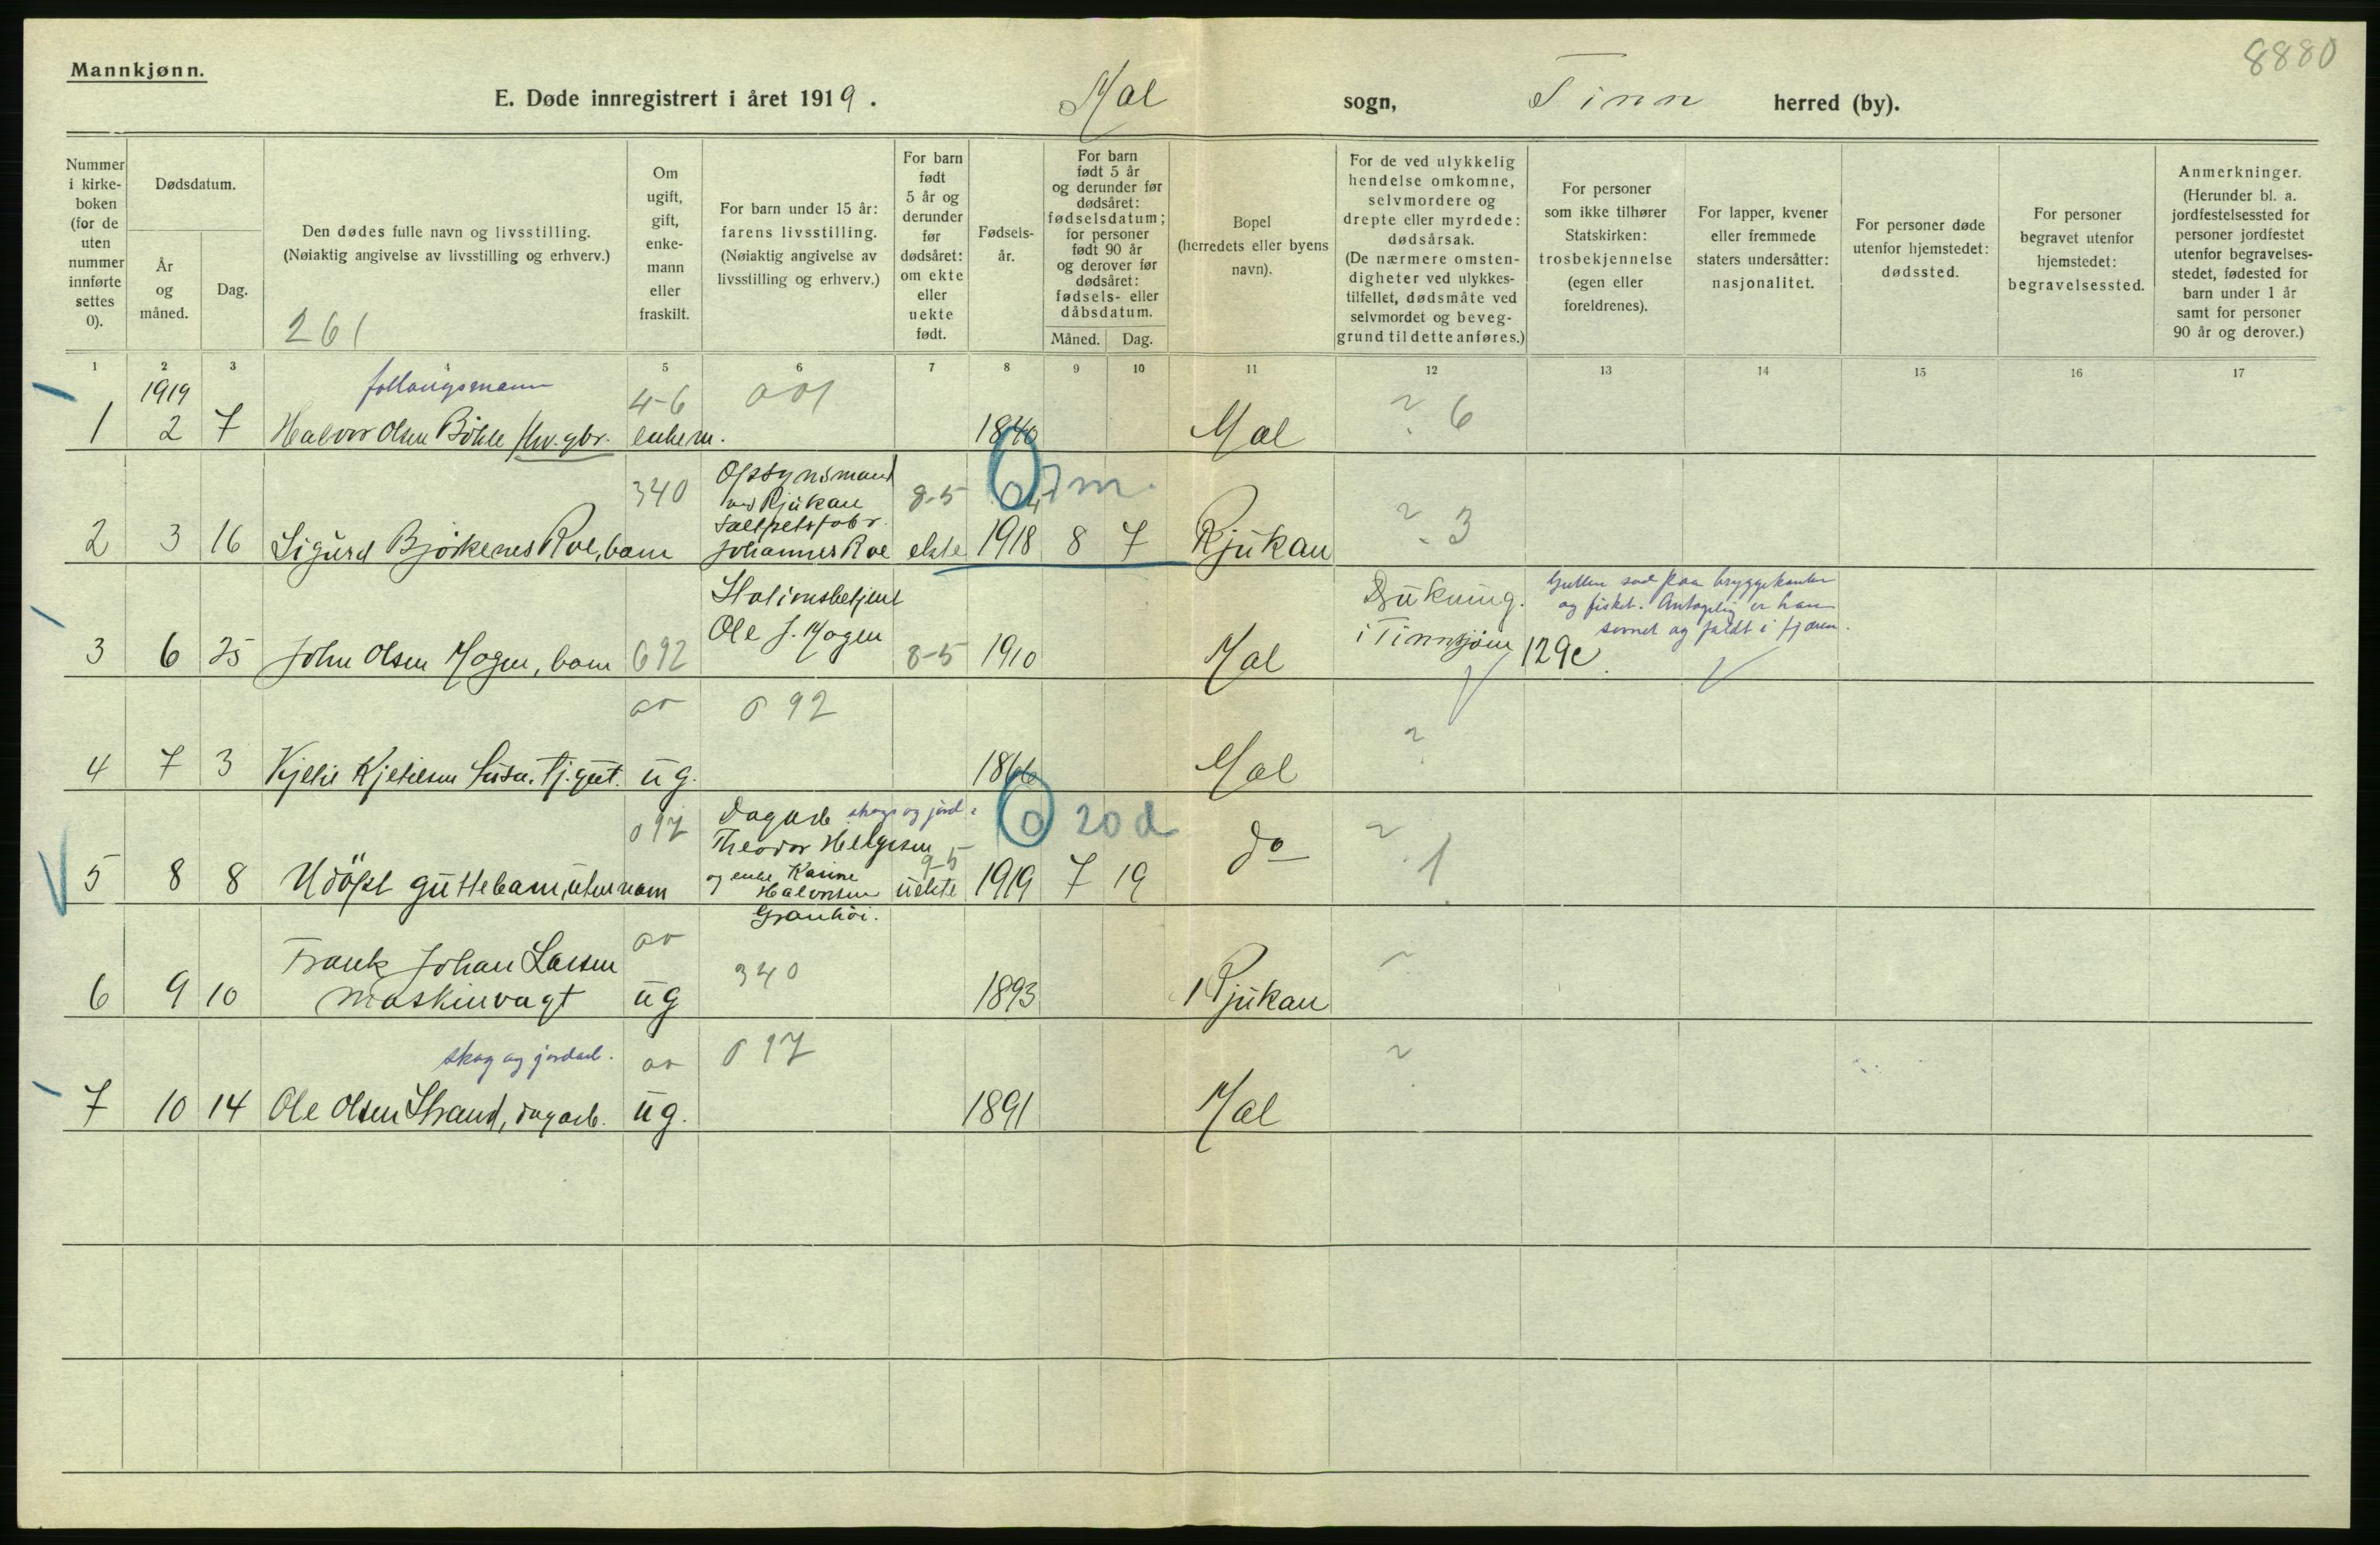 8880
Mannkjønn.
E. Døde innregistrert i året 1919. Mæl sogn, Tinn herred (by).
Nummer i kirke-boken (for de uten nummer innførte settes 0).
Dødsdatum.
År og måned.
Dag.
Den dødes fulle navn og livsstilling.
(Nøiaktig angivelse av livsstilling og erhverv.)
261
Om ugift, gift, enke-mann eller fraskilt.
For barn under 15 år: farens livsstilling.
(Nøiaktig angivelse av livsstilling og erhverv.)
For barn født 5 år og derunder før dødsåret: om ekte eller uekte født.
Fødsels-år.
For barn født 5 år og derunder før dødsåret: fødselsdatum; for personer født 90 år og derover før dødsåret: fødsels- eller dåbsdatum.
Måned. Dag.
Bopel (herredets eller byens navn).
For de ved ulykkelig hendelse omkomne, selvmordere og drepte eller myrdede: dødsårsak.
(De nærmere omsten-digheter ved ulykkes-tilfellet, dødsmåte ved selvmordet og beveg-grund til dette anføres.)
For personer som ikke tilhører Statskirken: trosbekjennelse (egen eller foreldrenes).
For lapper, kvener eller fremmede staters undersåtter: nasjonalitet.
For personer døde utenfor hjemstedet: dødssted.
For personer begravet utenfor hjemstedet: begravelsessted.
Anmerkninger.
(Herunder bl. a. jordfestelsessted for personer jordfestet utenfor begravelses-stedet, fødested for barn under 1 år samt for personer 90 år og derover.)
1 2 3 4 5 6 7 8 9 10 11 12 13 14 15 16 17
1919 follaugsmann 4-6 001 ? 6
1 2 7 Halvor Olsen Bøhle gbr. enkem. 1840 Mæl
340 Opsynsmand ved Rjukan Salpeterfabr. 8-5 0 7 m. ? 3
2 3 16 Sigurd Bjørkenes Roe, barn Johannes Roe ekte 1918 8 7 Rjukan
Stasionsbetjent Drukning. Gutten sad paa bryggekanten
og fisket. Antagelig er han
sovnet og faldt i sjøen.
3 6 25 John Olsen Mogen, barn 692 Ole J. Mogen 8-5 1910 Mæl i Tinnsjøen 129e.
00 092 ?
4 7 3 Kjetil Kjetilsen tj.gut. ug. 1866 Mæl
017 Dagarb. skogs og jord. 0 20 d ?
5 8 8 Udøpt guttebarn, uten navn Theodor Helgesen og enke Karine Halvorsen Granhöi. 9-5 uekte 1919 7 19 do 1
00 340
6 9 10 Frank Johan Larsen
maskinvagt ug 1893 Rjukan
skog og jordarb. 00 017 ?
7 10 14 Ole Olsen Strand, dagarb. ug. 1891 Mæl